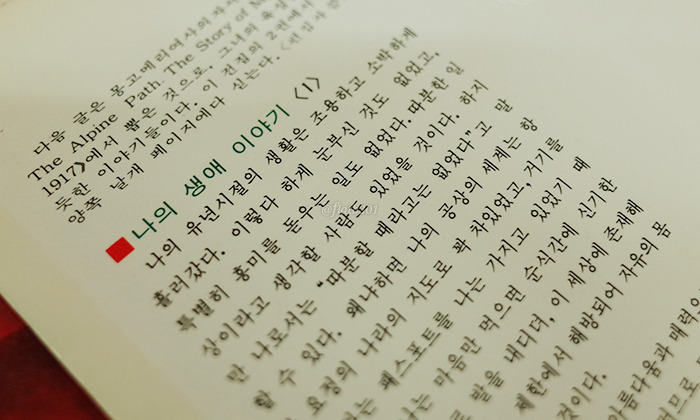 다음 글은 몽고메리여사의 자서
The Alpine Path. The Story of M
1917>에서 뽑은 것으로, 그녀의 육성
듯한 이야기들이다. 이 전집의 2권에서
양쪽 날개 페이지에다 싣는다. <편집자
나의 생애 이야기 〈1〉
나의 유년시절의 생활은 조용하고 소박하게
흘러갔다. 이렇다 하게 눈부신 것도 없었고,
특별히 흥미를 돋우는 일도 없었다. 따분한 일
상이라고 생각할 사람도 있었을 것이다. 하지
만 나로서는 “따분할 때라고는 없었다”고 말
할 수 있다. 왜냐하면 나의 공상의 세계는 항
요정의 나라의 지도로 꽉 차있었고, 거기를
패스포트를 나는 가지고 있었기 때
나는 마음만 먹으면 순식간에 신기한
로 발을 내디뎌, 이 세상에 존재해
제한에서 해방되어 자유의 몸
것이다.
름다움과 매력으
@fragum